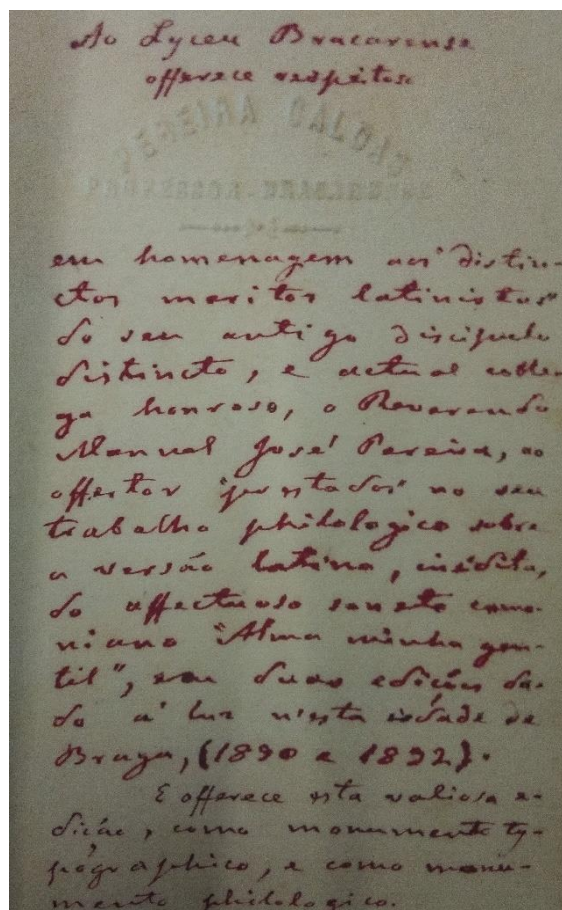 Ao Lyceu Bracarense
offerece respeitoso
em homenagem aos distin-
ctos meritos latinistas
do seu antigo discipulo
distincto, e actual colle-
ga honroso, o Reverendo
Manuel José Pereira, ao
offertor prestados no seu
trabalho philologico sobre
a versão latina, inédita,
do affectuoso soneto camo-
niano "Alma minha gen-
til", em duas edições da-
do á luz n'esta cidade de
Braga, (1890 e 1892).
E offerece esta valiosa e-
dição, como monumento ty-
pográphico, e como monu-
mento philologico.